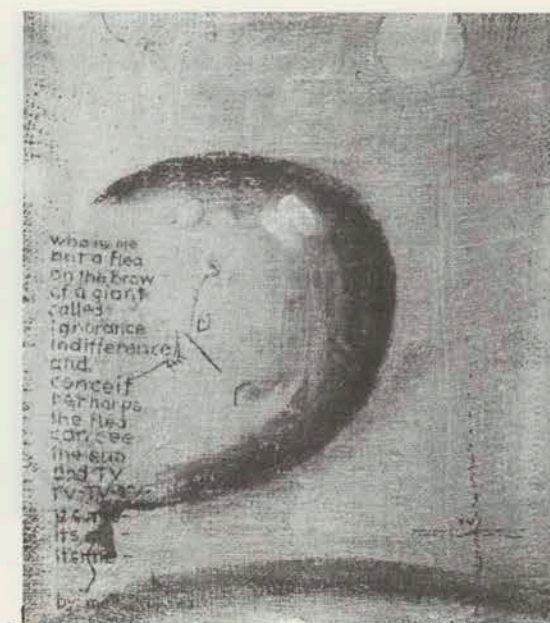 who is me
but a flea
on the brow
of a giant
called
ignorance
indifference
and
conceit
perharps
the flea
can see
the sun
and TV
TV-TV-TV-
its me
its
its me -
by me